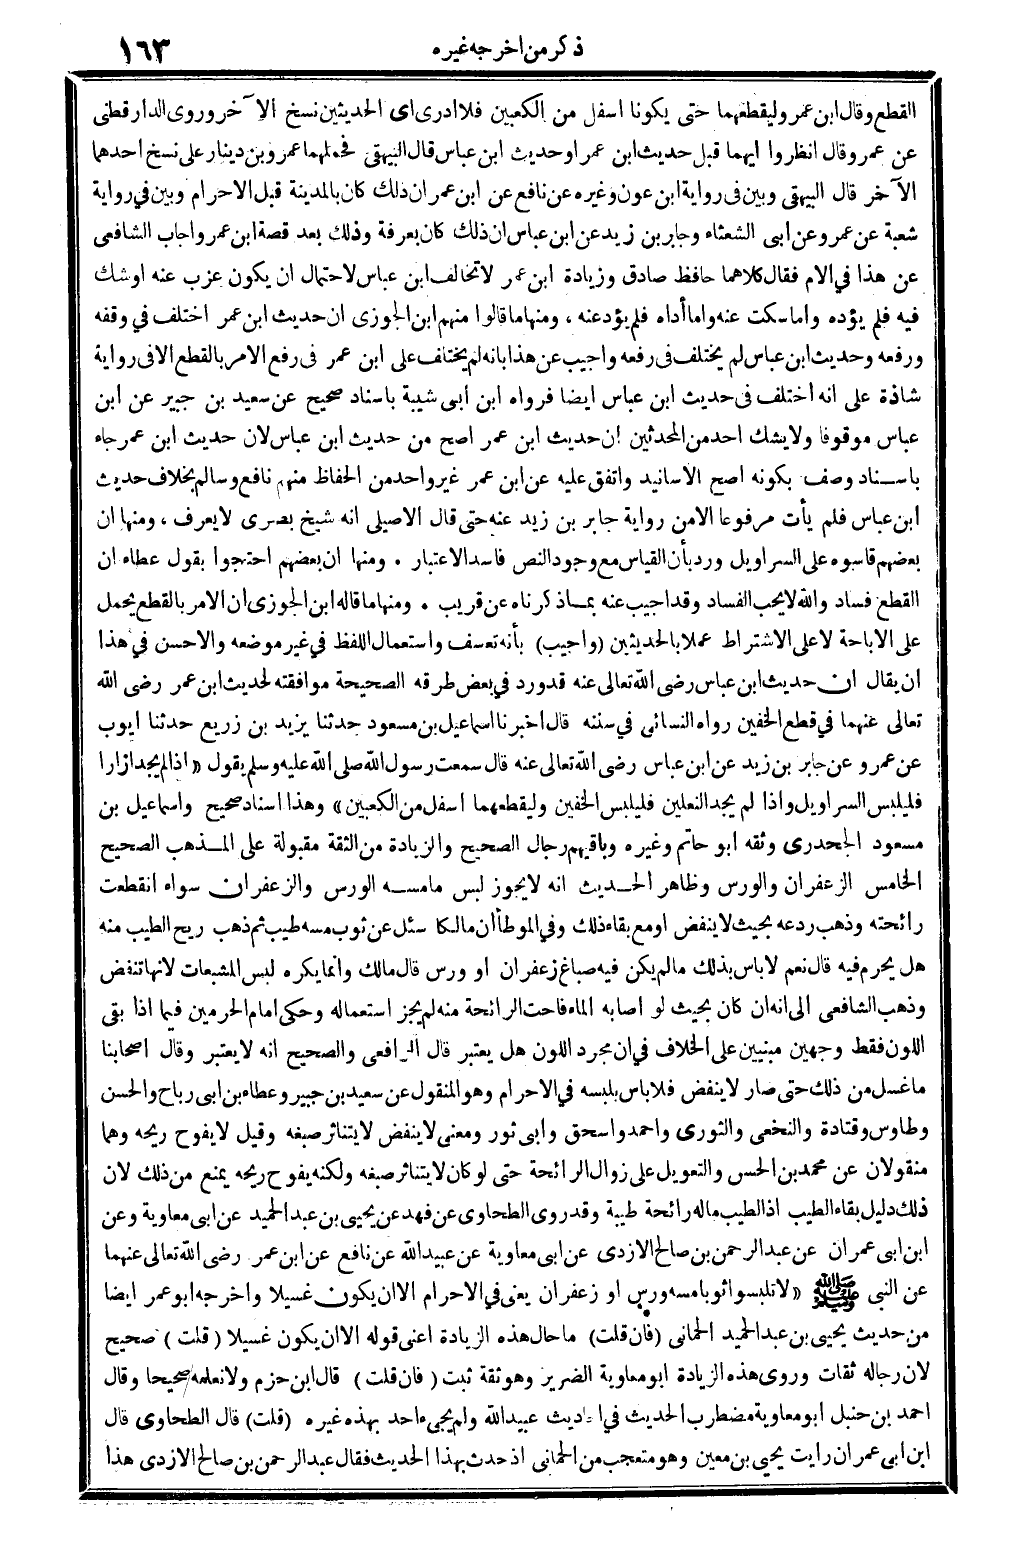 ذكر من اخرجه غيره ١٦٣
القطع وقال ابن عمر وليقطعهما حتى يكونا اسفل من الكعبين فلا ادرى اى الحديثين نسخ الآخر وروى الدارقطنى
عن عمر وقال انظروا ايهما قبل حديث ابن عمر او حديث ابن عباس قال البيهقى فحملهما عمرو بن دينار على نسخ احدهما
الآخر قال البيهقى وبين فى رواية ابن عون وغيره عن نافع عن ابن عمر ان ذلك كان بالمدينة قبل الاحرام وبين في رواية
شعبة عن عمرو عن ابى الشعثاء وجابر بن زيد عن ابن عباس ان ذلك كان بعرفة وذلك بعد قصة ابن عمر واجاب الشافعى
عن هذا في الام فقال كلاهما حافظ صادق وزيادة ابن عمر لا تخالف ابن عباس لاحتمال ان يكون عزب عنه او شك
فيه فلم يؤده واما سكت عنه واما أداه فلم يؤد عنه ، ومنها ما قالوا منهم ابن الجوزى ان حديث ابن عمر اختلف في وقفه
ورفعه وحديث ابن عباس لم يختلف فى رفعه واجيب عن هذا بانه لم يختلف على ابن عمر فى رفع الامر بالقطع الا فى رواية
شاذة على انه اختلف فى حديث ابن عباس ايضا فرواه ابن ابى شيبة باسناد صحيح عن سعيد بن جبير عن ابن
عباس موقوفا ولا يشك احد من المحدثين ان حديث ابن عمر اصح من حديث ابن عباس لان حديث ابن عمر جاء
باسناد وصف بكونه اصح الاسانيد واتفق عليه عن ابن عمر غير واحد من الحفاظ منهم نافع وسالم بخلاف حديث
ابن عباس فلم يأت مرفوعا الا من رواية جابر بن زيد عنه حتى قال الاصيلى انه شيخ بصرى لا يعرف ، ومنها ان
بعضهم قاسوه على السراويل ورد بأن القياس مع وجود النص فاسد الاعتبار . ومنها ان بعضهم احتجوا بقول عطاء ان
القطع فساد والله لا يحب الفساد وقد اجيب عنه بما ذكرناه عن قريب . ومنها ما قاله ابن الجوزى ان الامر بالقطع يحمل
على الاباحة لا على الاشتراط عملا بالحديثين (واجيب) بأنه تعسف واستعمال اللفظ في غير موضعه والاحسن في هذا
ان يقال ان حديث ابن عباس رضى الله تعالى عنه قد ورد في بعض طرقه الصحيحة موافقته لحديث ابن عمر رضى الله
تعالى عنهما في قطع الخفين رواه النسائى في سننه قال اخبرنا اسماعيل بن مسعود حدثنا يزيد بن زريع حدثنا ايوب
عن عمرو عن جابر بن زيد عن ابن عباس رضى الله تعالى عنه قال سمعت رسول الله صلى الله عليه وسلم يقول « اذا لم يجد ازارا
فليلبس السراويل واذا لم يجد النعلين فليلبس الخفين وليقطعهما اسفل من الكعبين » وهذا اسناد صحيح واسماعيل بن
مسعود الجحدرى وثقه ابو حاتم وغيره وباقيهم رجال الصحيح والزيادة من الثقة مقبولة على المذهب الصحيح
الخامس الزعفران والورس وظاهر الحديث انه لا يجوز لبس ما مسه الورس والزعفران سواء انقطعت
رائحته وذهب ردعه بحيث لا ينفض او مع بقاء ذلك وفي الموطأ ان مالكا سئل عن ثوب مسه طيب ثم ذهب ريح الطيب منه
هل يحرم فيه قال نعم لا باس بذلك ما لم يكن فيه صباغ زعفران او ورس قال مالك وانما يكره لبس المشبعات لانها تنفض
وذهب الشافعى الى انه ان كان بحيث لو اصابه الماء فاحت الرائحة منه لم يجز استعماله وحكى امام الحرمين فيما اذا بقى
اللون فقط وجهين مبنيين على الخلاف في ان مجرد اللون هل يعتبر قال الرافعى والصحيح انه لا يعتبر وقال اصحابنا
ما غسل من ذلك حتى صار لا ينفض فلا باس بلبسه في الاحرام وهو المنقول عن سعيد بن جبير وعطاء بن ابى رباح والحسن
وطاوس وقتادة والنخعى والثورى واحمد واسحق وابى ثور ومعنى لا ينفض لا يتناثر صبغه وقيل لا يفوح ريحه وهما
منقولان عن محمد بن الحسن والتعويل على زوال الرائحة حتى لو كان لا يتناثر صبغه ولكنه يفوح ريحه يمنع من ذلك لان
ذلك دليل بقاء الطيب اذ الطيب ما له رائحة طيبة وقد روى الطحاوى عن فهد عن يحيى بن عبد الحميد عن ابى معاوية وعن
ابن ابى عمران عن عبد الرحمن بن صالح الازدى عن ابى معاوية عن عبيد الله عن نافع عن ابن عمر رضى الله تعالى عنهما
عن النبى ﷺ « لا تلبسوا ثوبا مسه ورس او زعفران يعنى في الاحرام الا ان يكون غسيلا واخرجه ابو عمر ايضا
من حديث يحيى بن عبد الحميد الحمانى (فان قلت) ما حال هذه الزيادة اعنى قوله الا ان يكون غسيلا (قلت) صحيح
لان رجاله ثقات وروى هذه الزيادة ابو معاوية الضرير وهو ثقة ثبت (فان قلت) قال ابن حزم ولا نعلمه صحيحا وقال
احمد بن حنبل ابو معاوية مضطرب الحديث في احاديث عبيد الله ولم يجىء احد بهذه غيره (قلت) قال الطحاوى قال
ابن ابى عمران رايت يحيى بن معين وهو متعجب من الحمانى اذ حدث بهذا الحديث فقال عبد الرحمن بن صالح الازدى هذا